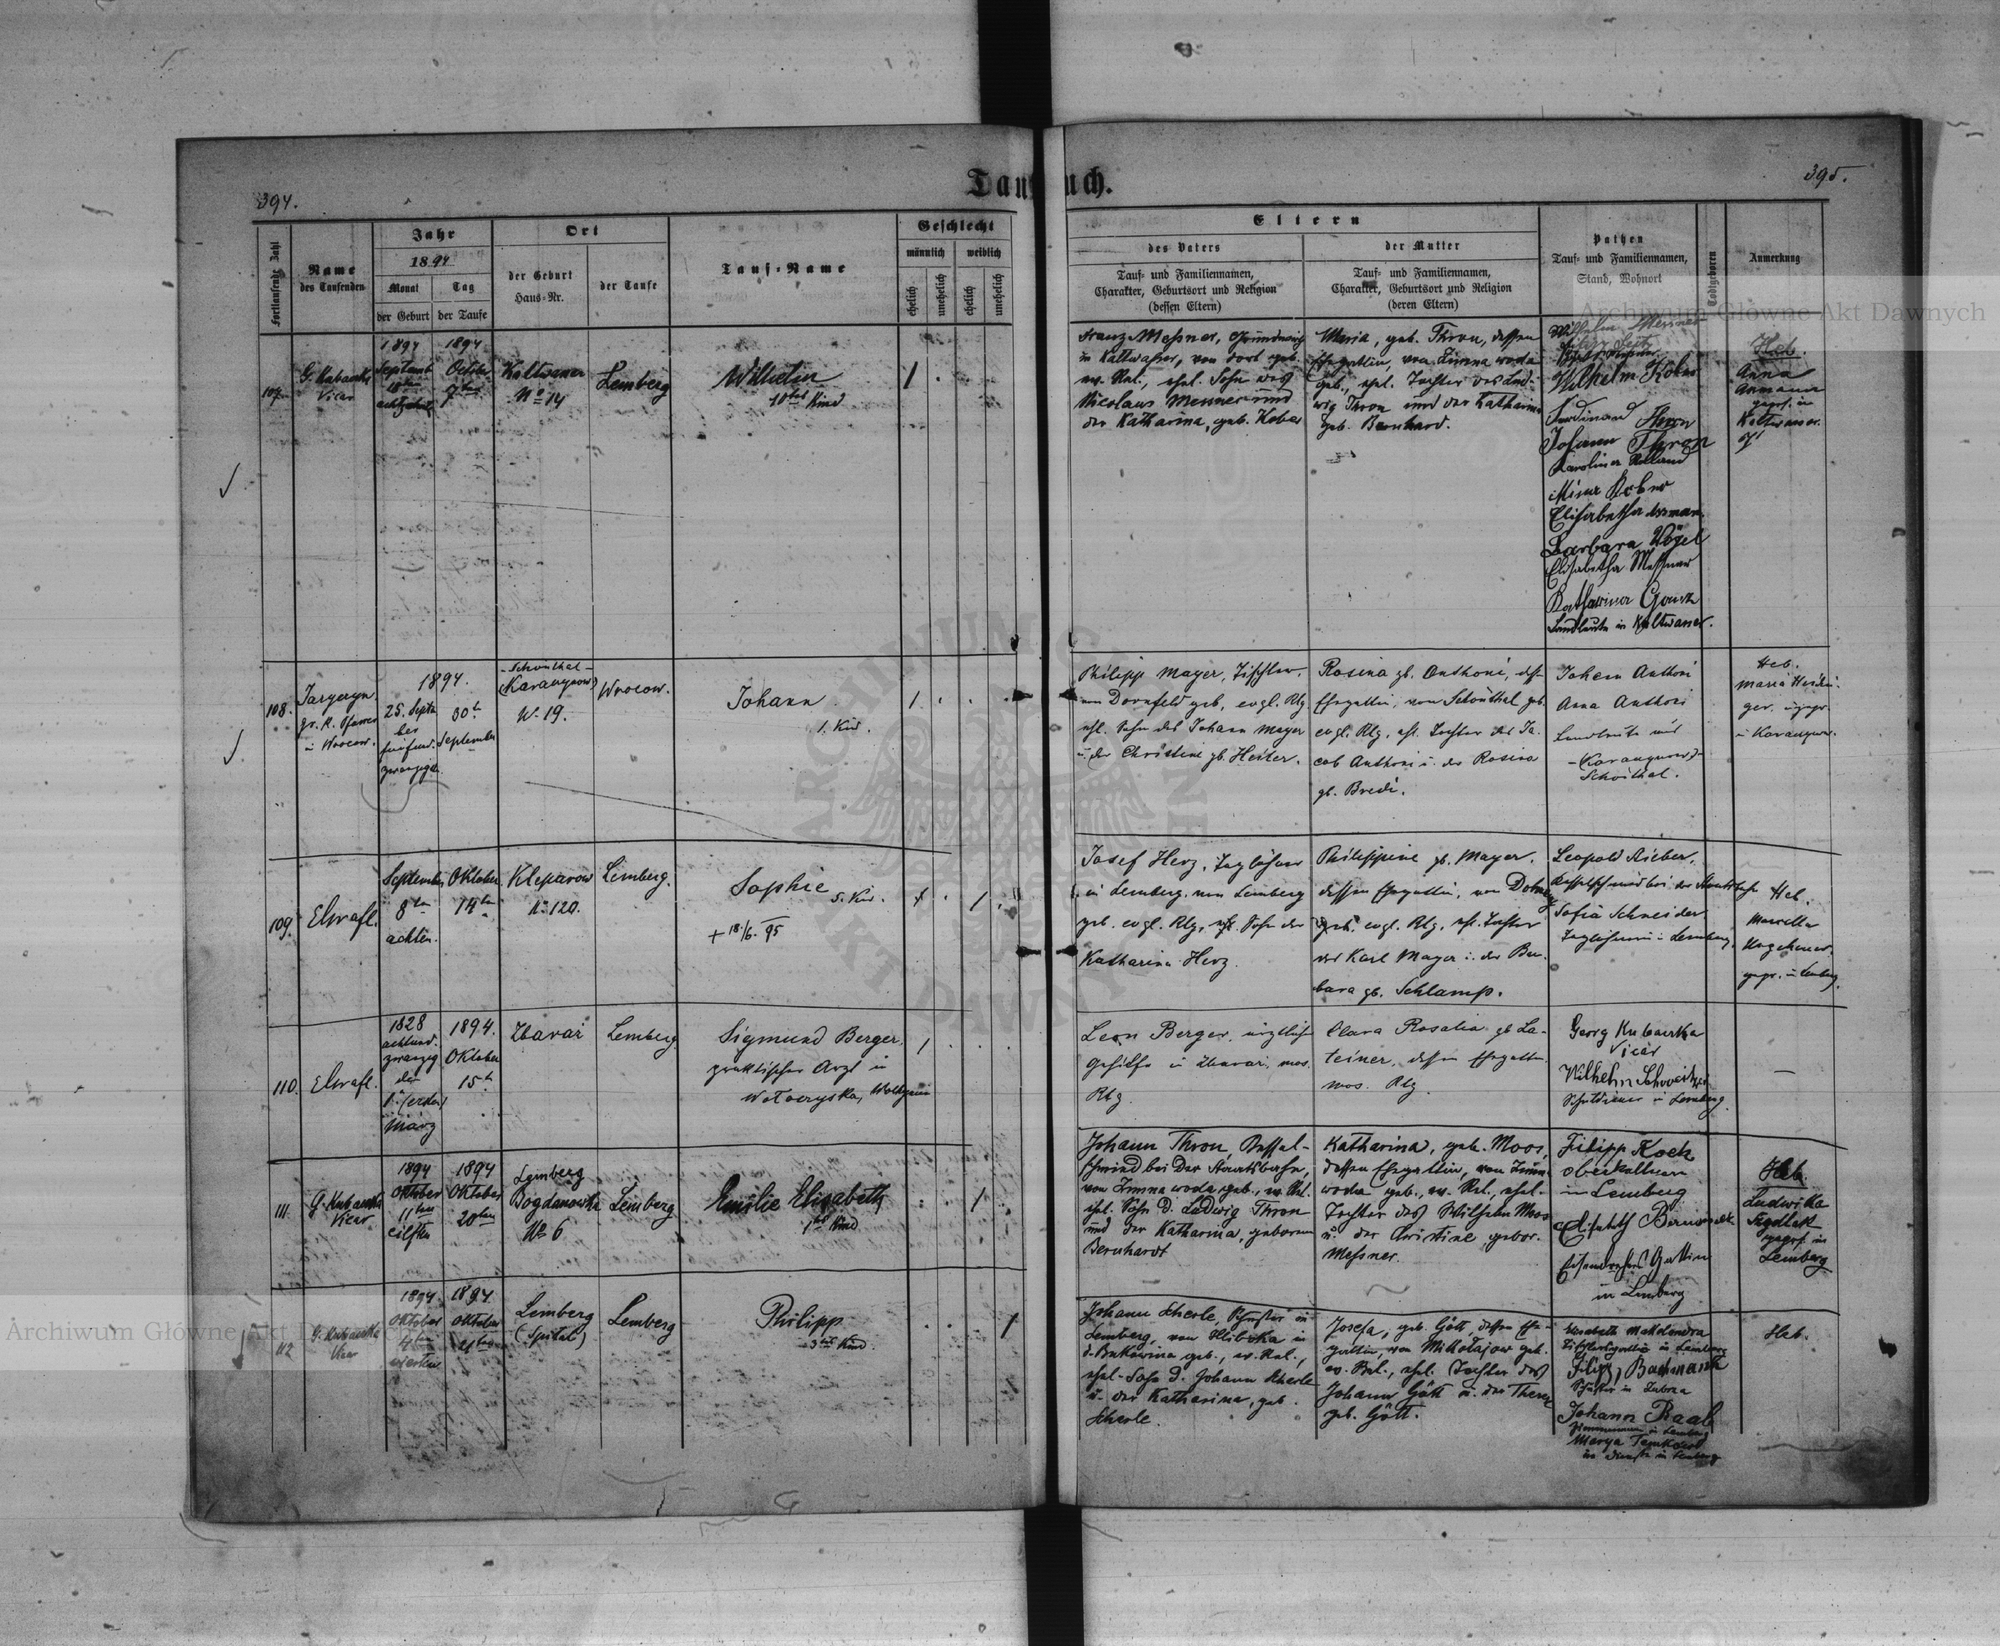 394.
Taufbuch.
395.
Fortlaufende Zahl
Name
des Taufenden
Jahr
1894
Monat
der Geburt
Tag
der Taufe
Ort
der Geburt
Haus-Nr.
der Taufe
Tauf-Name
Geschlecht
männlich
weiblich
ehelich
unehelich
ehelich
unehelich
Eltern
des Vaters
Tauf- und Familiennamen,
Charakter, Geburtsort und Religion
(dessen Eltern)
der Mutter
Tauf- und Familiennamen,
Charakter, Geburtsort und Religion
(deren Eltern)
Pathen
Tauf- und Familiennamen,
Stand, Wohnort
Todtgeboren
Anmerkung
107.
G. Kubaczka
Vicar
1894
Septemb
18ten
achtzehnt
1894
October
7ten
Kaltwasser
No 14
Lemberg
Wilhelm
10tes Kind
1
Franz Messner, Grundwirth
in Kaltwasser, von dort geb.
ev. Rel., ehel. Sohn des
Nicolaus Messner und
der Katharina, geb. Kober
Maria, geb. Thron, dessen
Ehegattin, von Zimna woda
geb., ehel. Tochter des Lud-
wig Thron und der Katharina
geb. Bernhard.
Wilhelm Messner
Wilhelm Kober
Ferdinand Thron
Johann Thron
Karolina Rolland
Mina Kober
Elisabetha
Barbara Vogel
Elisabetha Messner
Katharina Ganz
Landleute in Kaltwasser.
Heb.
Anna
geprf. in
Kaltwasser.
108.
gr. k. Pfarrer
in Wrocow.
1894.
25. Septb
den
fünfund-
zwanzigst.
30t
September
-Schönthal-
(Karaczynow)
No 19.
Wrocow.
Johann
1. Kind.
1
Philipp Mayer, Tischler,
von Dornfeld geb, evgl. Rlg
ehl. Sohn des Johann Mayer
u. der Christine gb. Heuter.
Rosina gb. Anthoni, dess
Ehegattin, von Schönthal geb.
evgl. Rlg, ehl. Tochter des Ja-
cob Anthoni u. der Rosina
gb. Bredi.
Johann Anthoni
Anna Anthoni
Landleute aus
-Karaczynow)-
Schönthal.
Heb.
Maria
in Karaczynow.
109.
September
8ten
achten.
Oktober
14ten
Kleparow
No 120.
Lemberg.
Sophie
5. Kind.
+ 18./6. 95
1
Josef Herz, Taglöhner
in Lemberg, von Lemberg
geb. evgl. Rlg, ehl. Sohn der
Katharina Herz.
Philippine gb. Mayer,
dessen Ehegattin, von
geb. evgl. Rlg, ehl. Tochter
des Karl Mayer u. der Bar-
bara gb. Schlamp.
Leopold Rieber,
Kesselschmied bei der Staatsbahn
Sofia Schneider
Taglöhnerin in Lemberg.
Heb.
Marcella
geprf. in Lemberg.
110.
1828
achtund-
zwanzig
den
1. (ersten)
März
1894.
Oktober
15t
Zbaraż
Lemberg.
Sigmund Berger,
praktischer Arzt in
Wołoczyska, Wolhynien
1
Leon Berger, ärztlicher
Gehilfe in Zbaraż, mos.
Rlg.
Clara Rosalia gb La-
teiner, dessen Ehegattin
mos. Rlg.
Georg Kubaczka
Vicar
Wilhelm Schweitzer
Schuldiener in Lemberg.
—
111.
G. Kubaczka
Vicar
1894
Oktober
11ten
eilften
1894
Oktober
20ten
Lemberg
Bogdanówka
No 6
Lemberg
Emilie Elisabeth
1tes Kind
1
Johann Thron, Kessel-
schmied bei der Staatsbahn,
von Zimna woda geb., ev. Rel.
ehl. Sohn d. Ludwig Thron
und der Katharina, geborenen
Bernhardt
Katharina, geb. Moos,
dessen Ehegattin, von Zimna
woda geb., ev. Rel., ehel.
Tochter des Wilhelm Moos
u. der Christine, gebor.
Messner.
Filipp Kock
in Lemberg
Elisabeth
Gattin
in Lemberg
Heb.
Ludwika
geprf. in
Lemberg
112
G. Kubaczka
Vicar
1894.
Oktober
4ten
vierten
1894.
Oktober
21ten
Lemberg
(Spital)
Lemberg
Philipp
3tes Kind.
1
Johann Scherle, Schuster in
Lemberg, von Hliboka in
d. Bukowina geb., ev. Rel.,
ehel. Sohn d. Johann Scherle
u. der Katharina, geb.
Scherle.
Josefa, geb. Gött, dessen Ehe-
gattin, von Mikołajow geb.
ev. Rel., ehel. Tochter des
Johann Gött u. der Therese
geb. Gött.
Tischlersgattin in Lemberg
Filipp Bachmann
Schuster in Zubrza
Johann Raab
in Lemberg
Marya
im Dienste in Lemberg
Heb.
Archiwum Główne Akt Dawnych
Archiwum Główne Akt Dawnych
ARCHIWUM GŁÓWNE AKT DAWNYCH